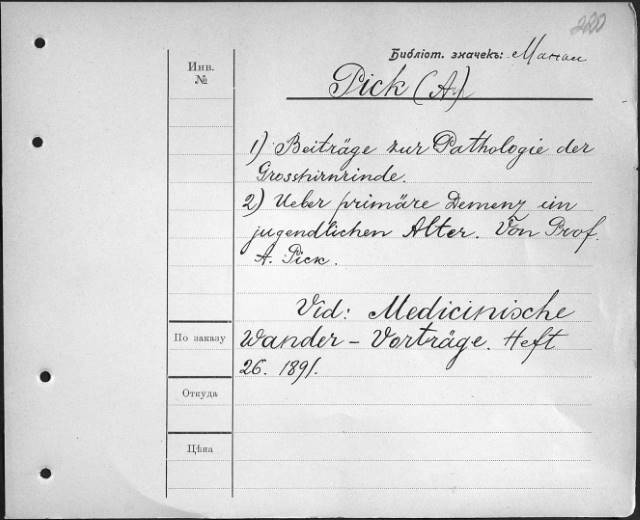 220
Библіот. значекъ:
Инв.
№
Pick (A)
1) Beiträge zur Pathologie der
Grosshirnrinde.
2) Ueber primäre Demenz im
jugendlichen Alter. Von Prof.
A. Pick.
Vid: Medicinische
По заказу
Wander - Vorträge. Heft
26. 1891.
Откуда
Цѣна